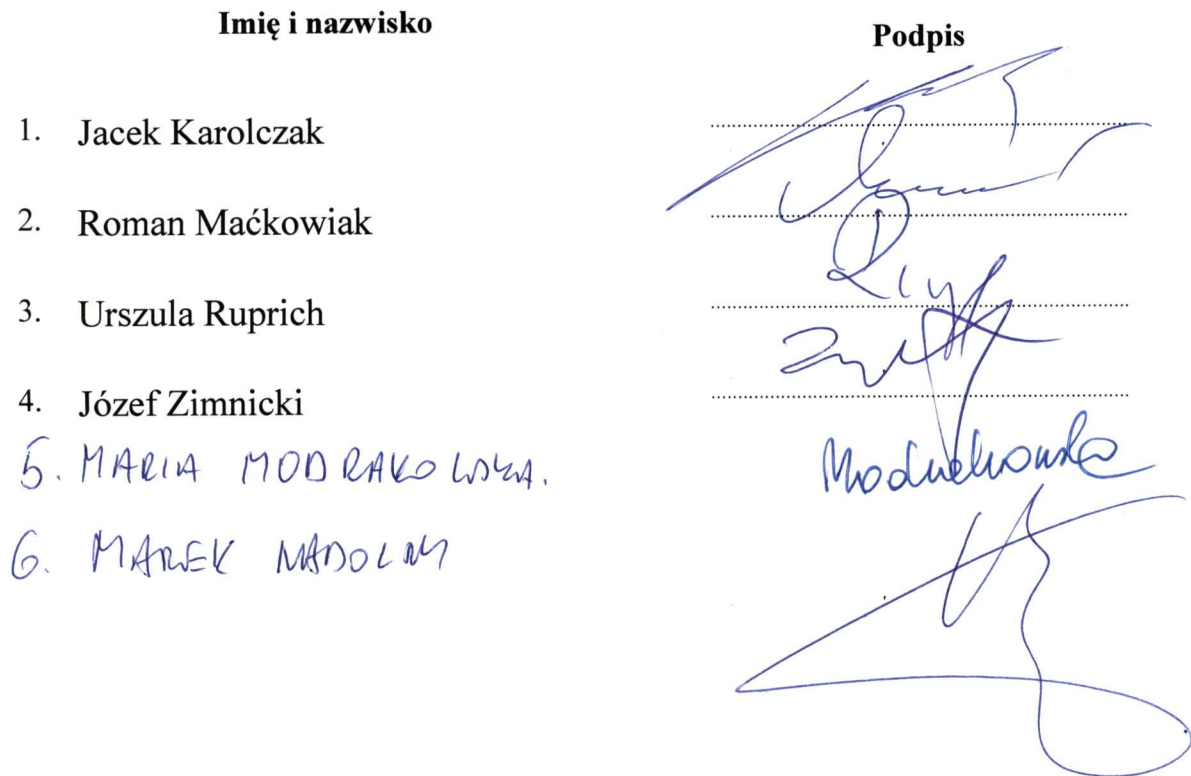 Imię i nazwisko
Podpis
1. Jacek Karolczak
2. Roman Maćkowiak
3. Urszula Ruprich
4. Józef Zimnicki
5. MARIA MODRAKOWSKA.
6. MAREK NADOLNY